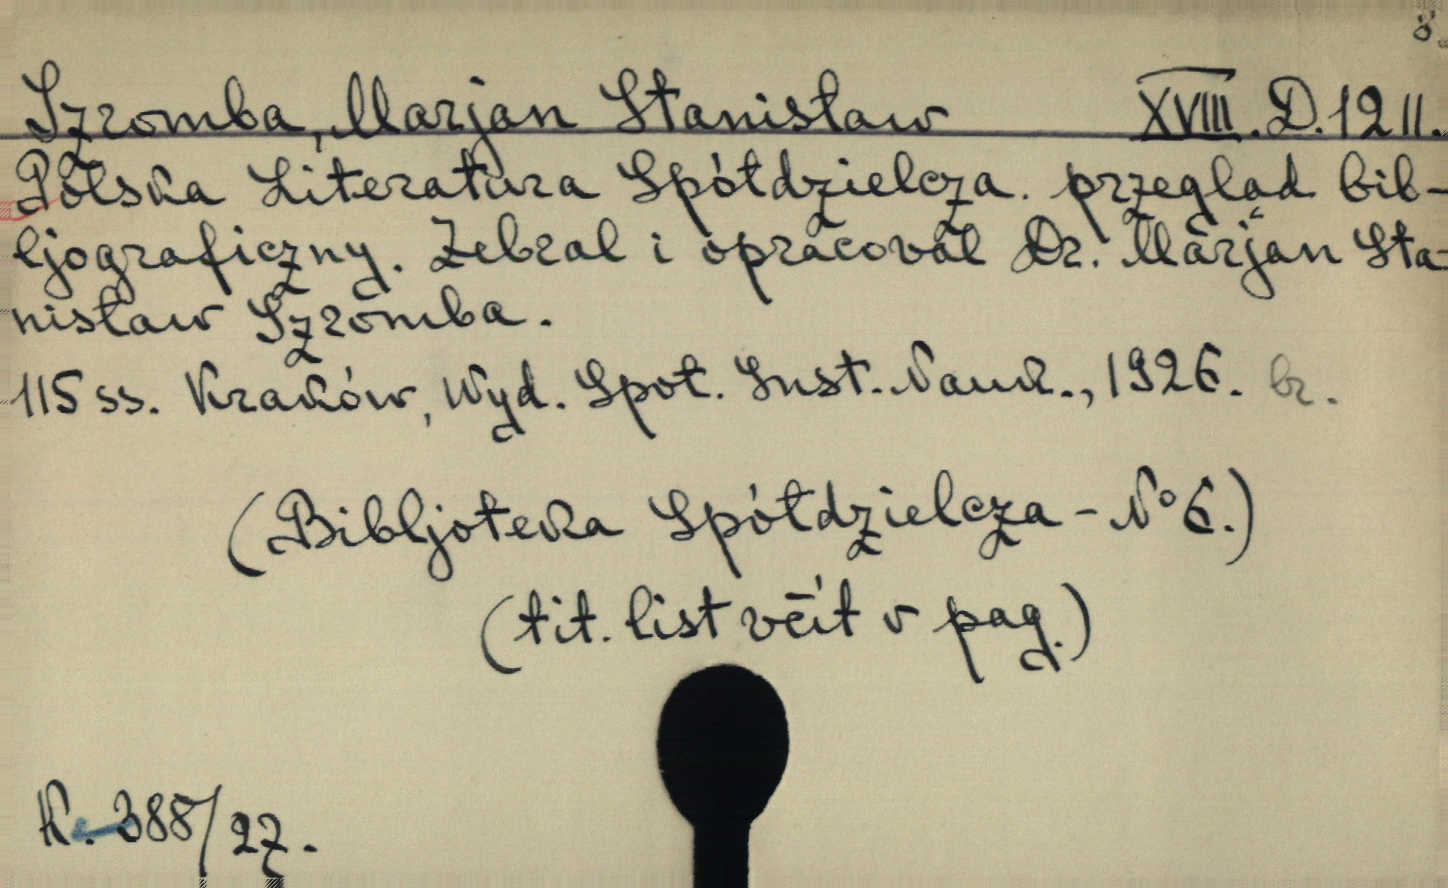 8.
Szromba, Marjan Stanisław XVIII. D. 1211.
Polska Literatura Spółdzielcza. przegląd bib-
ljograficzny. Zebrał i opracovał Dr. Marjan Sta-
nisław Szromba.
115 ss. Kraków, Wyd. Spot. Inst. Nauk., 1926. br.
(Bibljoteka Spółdzielcza - No 6.)
(tit. list včít v pag.)
K. 388/27.